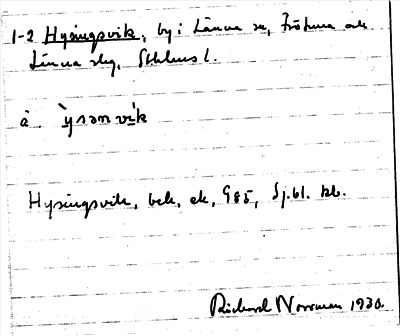 1-2 Hysingsvik, by i Länna sn, Frötuna och
Länna skg, Sthlms l.
å `ysən vi̇k
Hysingsvik, bek, ek, G85, Sj.bl. kb.
Richard Norrman 1930.